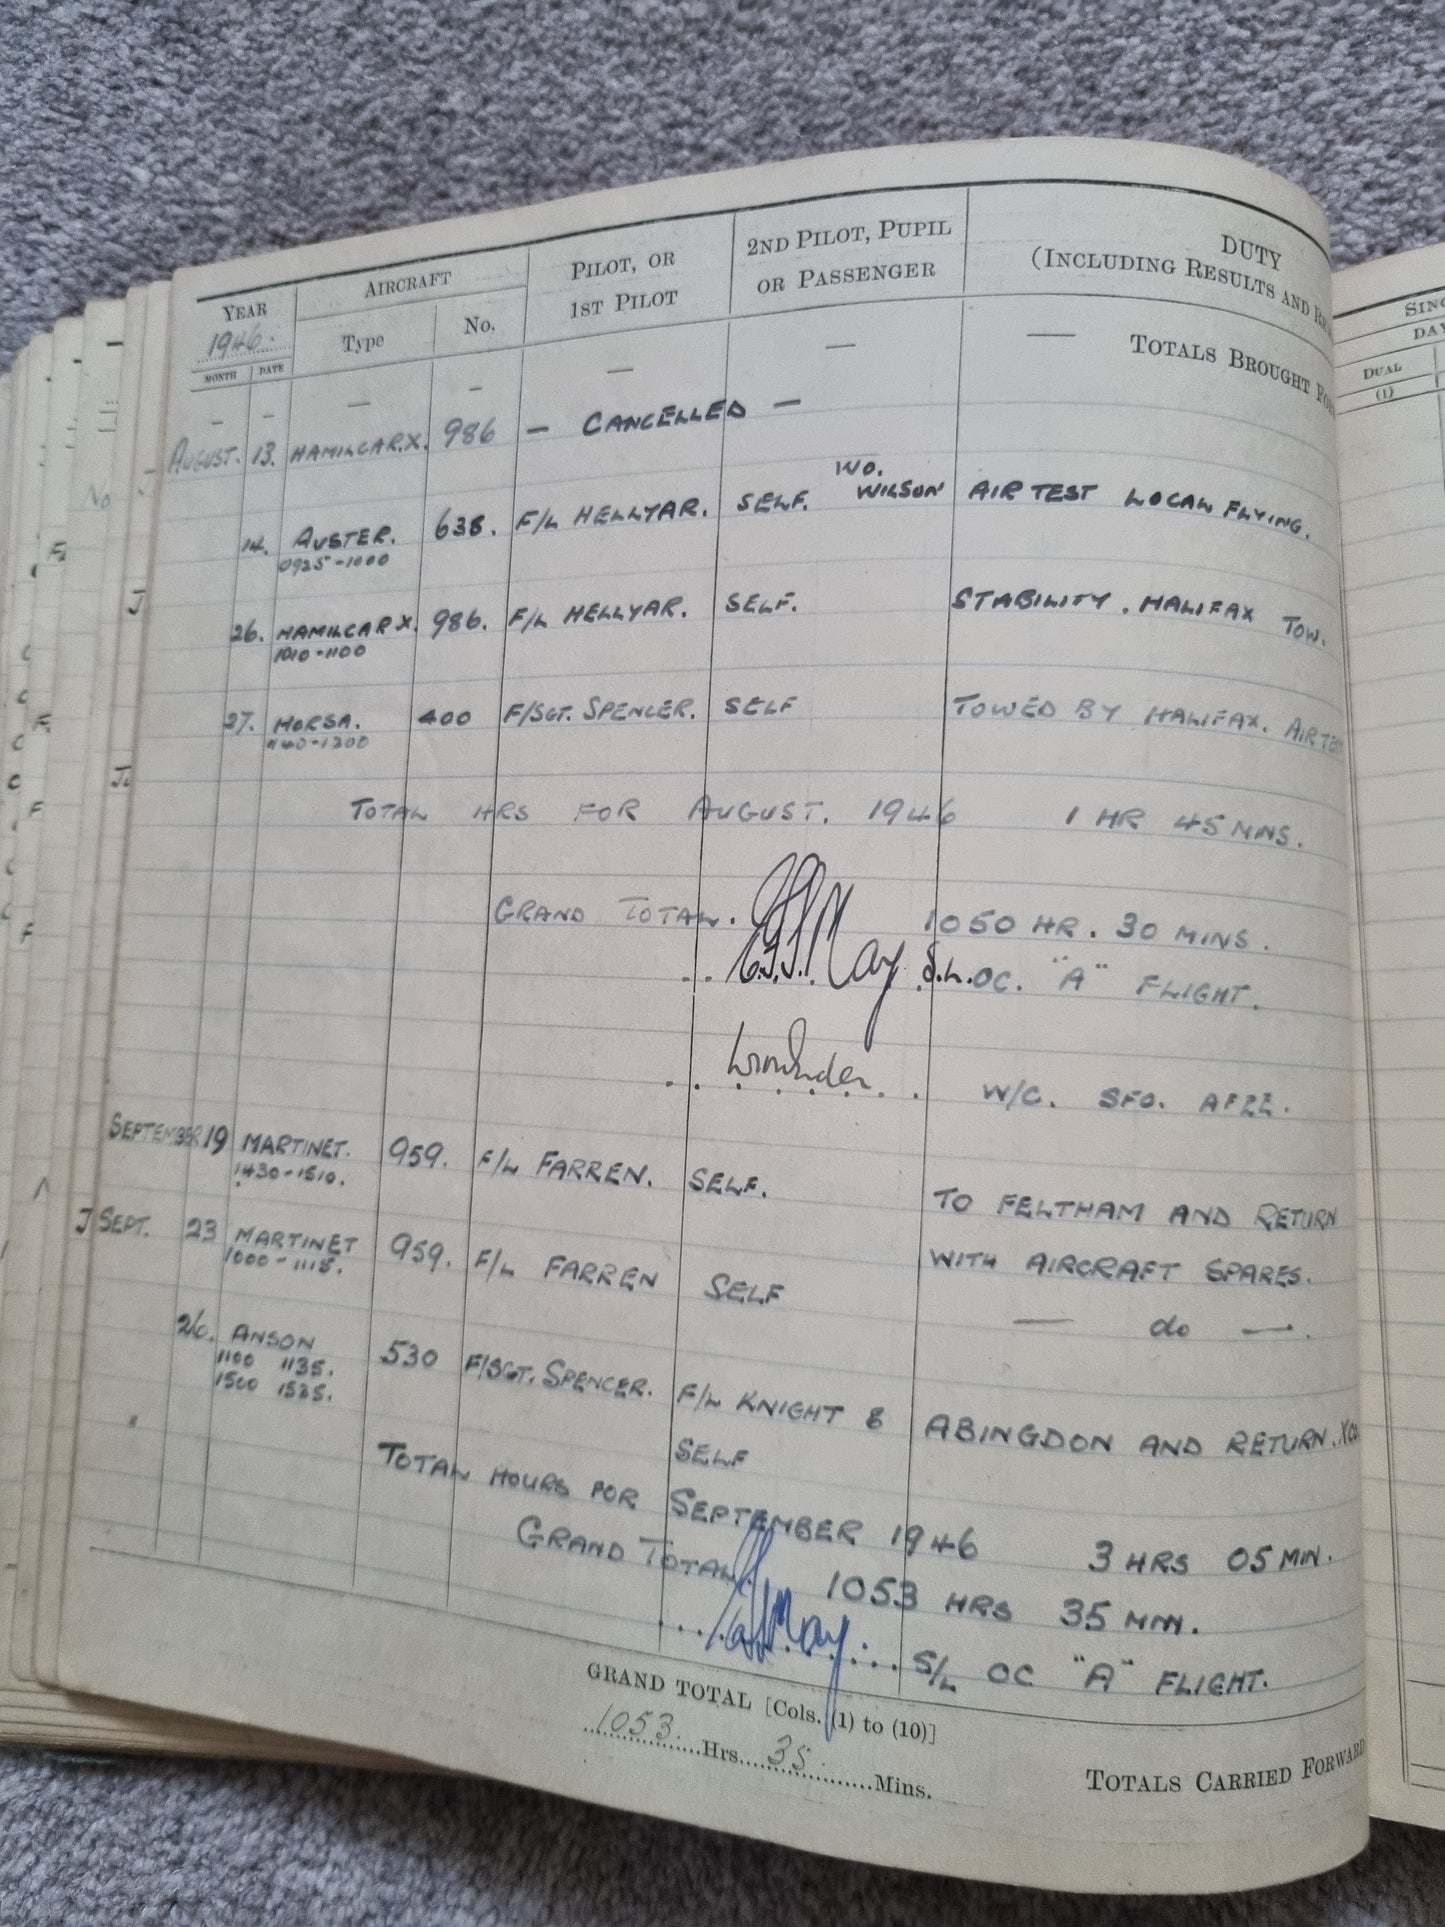 YEAR AIRCRAFT PILOT, OR 2ND PILOT, PUPIL DUTY
1946. Type No. 1ST PILOT OR PASSENGER (INCLUDING RESULTS AND RE
MONTH DATE
— — — — — — — TOTALS BROUGHT FOR
AUGUST. 13. HAMILCAR.X. 986 — CANCELLED —
WO.
14. AUSTER. 638. F/L HELLYAR. SELF. WILSON AIR TEST LOCAL FLYING.
0925-1000
26. HAMILCAR X. 986. F/L HELLYAR. SELF. STABILITY. HALIFAX TOW.
1010-1100
27. HORSA. 400 F/SGT. SPENCER. SELF TOWED BY HALIFAX. AIR TEST
1140-1200
TOTAL HRS FOR AUGUST. 1946 1 HR 45 MINS.
GRAND TOTAL. 1050 HR. 30 MINS.
May S.L. OC. "A" FLIGHT.
W/C. SFO. AFEE.
SEPTEMBER 19 MARTINET. 959. F/L FARREN. SELF. TO FELTHAM AND RETURN
1430-1510. WITH AIRCRAFT SPARES.
SEPT. 23 MARTINET 959. F/L FARREN SELF — do —.
1000-1115.
26. ANSON 530 F/SGT. SPENCER. F/L KNIGHT & ABINGDON AND RETURN.
1100 1135. SELF
1500 1535.
TOTAL HOURS FOR SEPTEMBER 1946 3 HRS 05 MIN.
GRAND TOTAL. 1053 HRS 35 MIN.
May S/L OC "A" FLIGHT.
GRAND TOTAL [Cols. (1) to (10)]
1053 Hrs. 35 Mins.
TOTALS CARRIED FORWARD
SING
DAY
DUAL
(1)
No